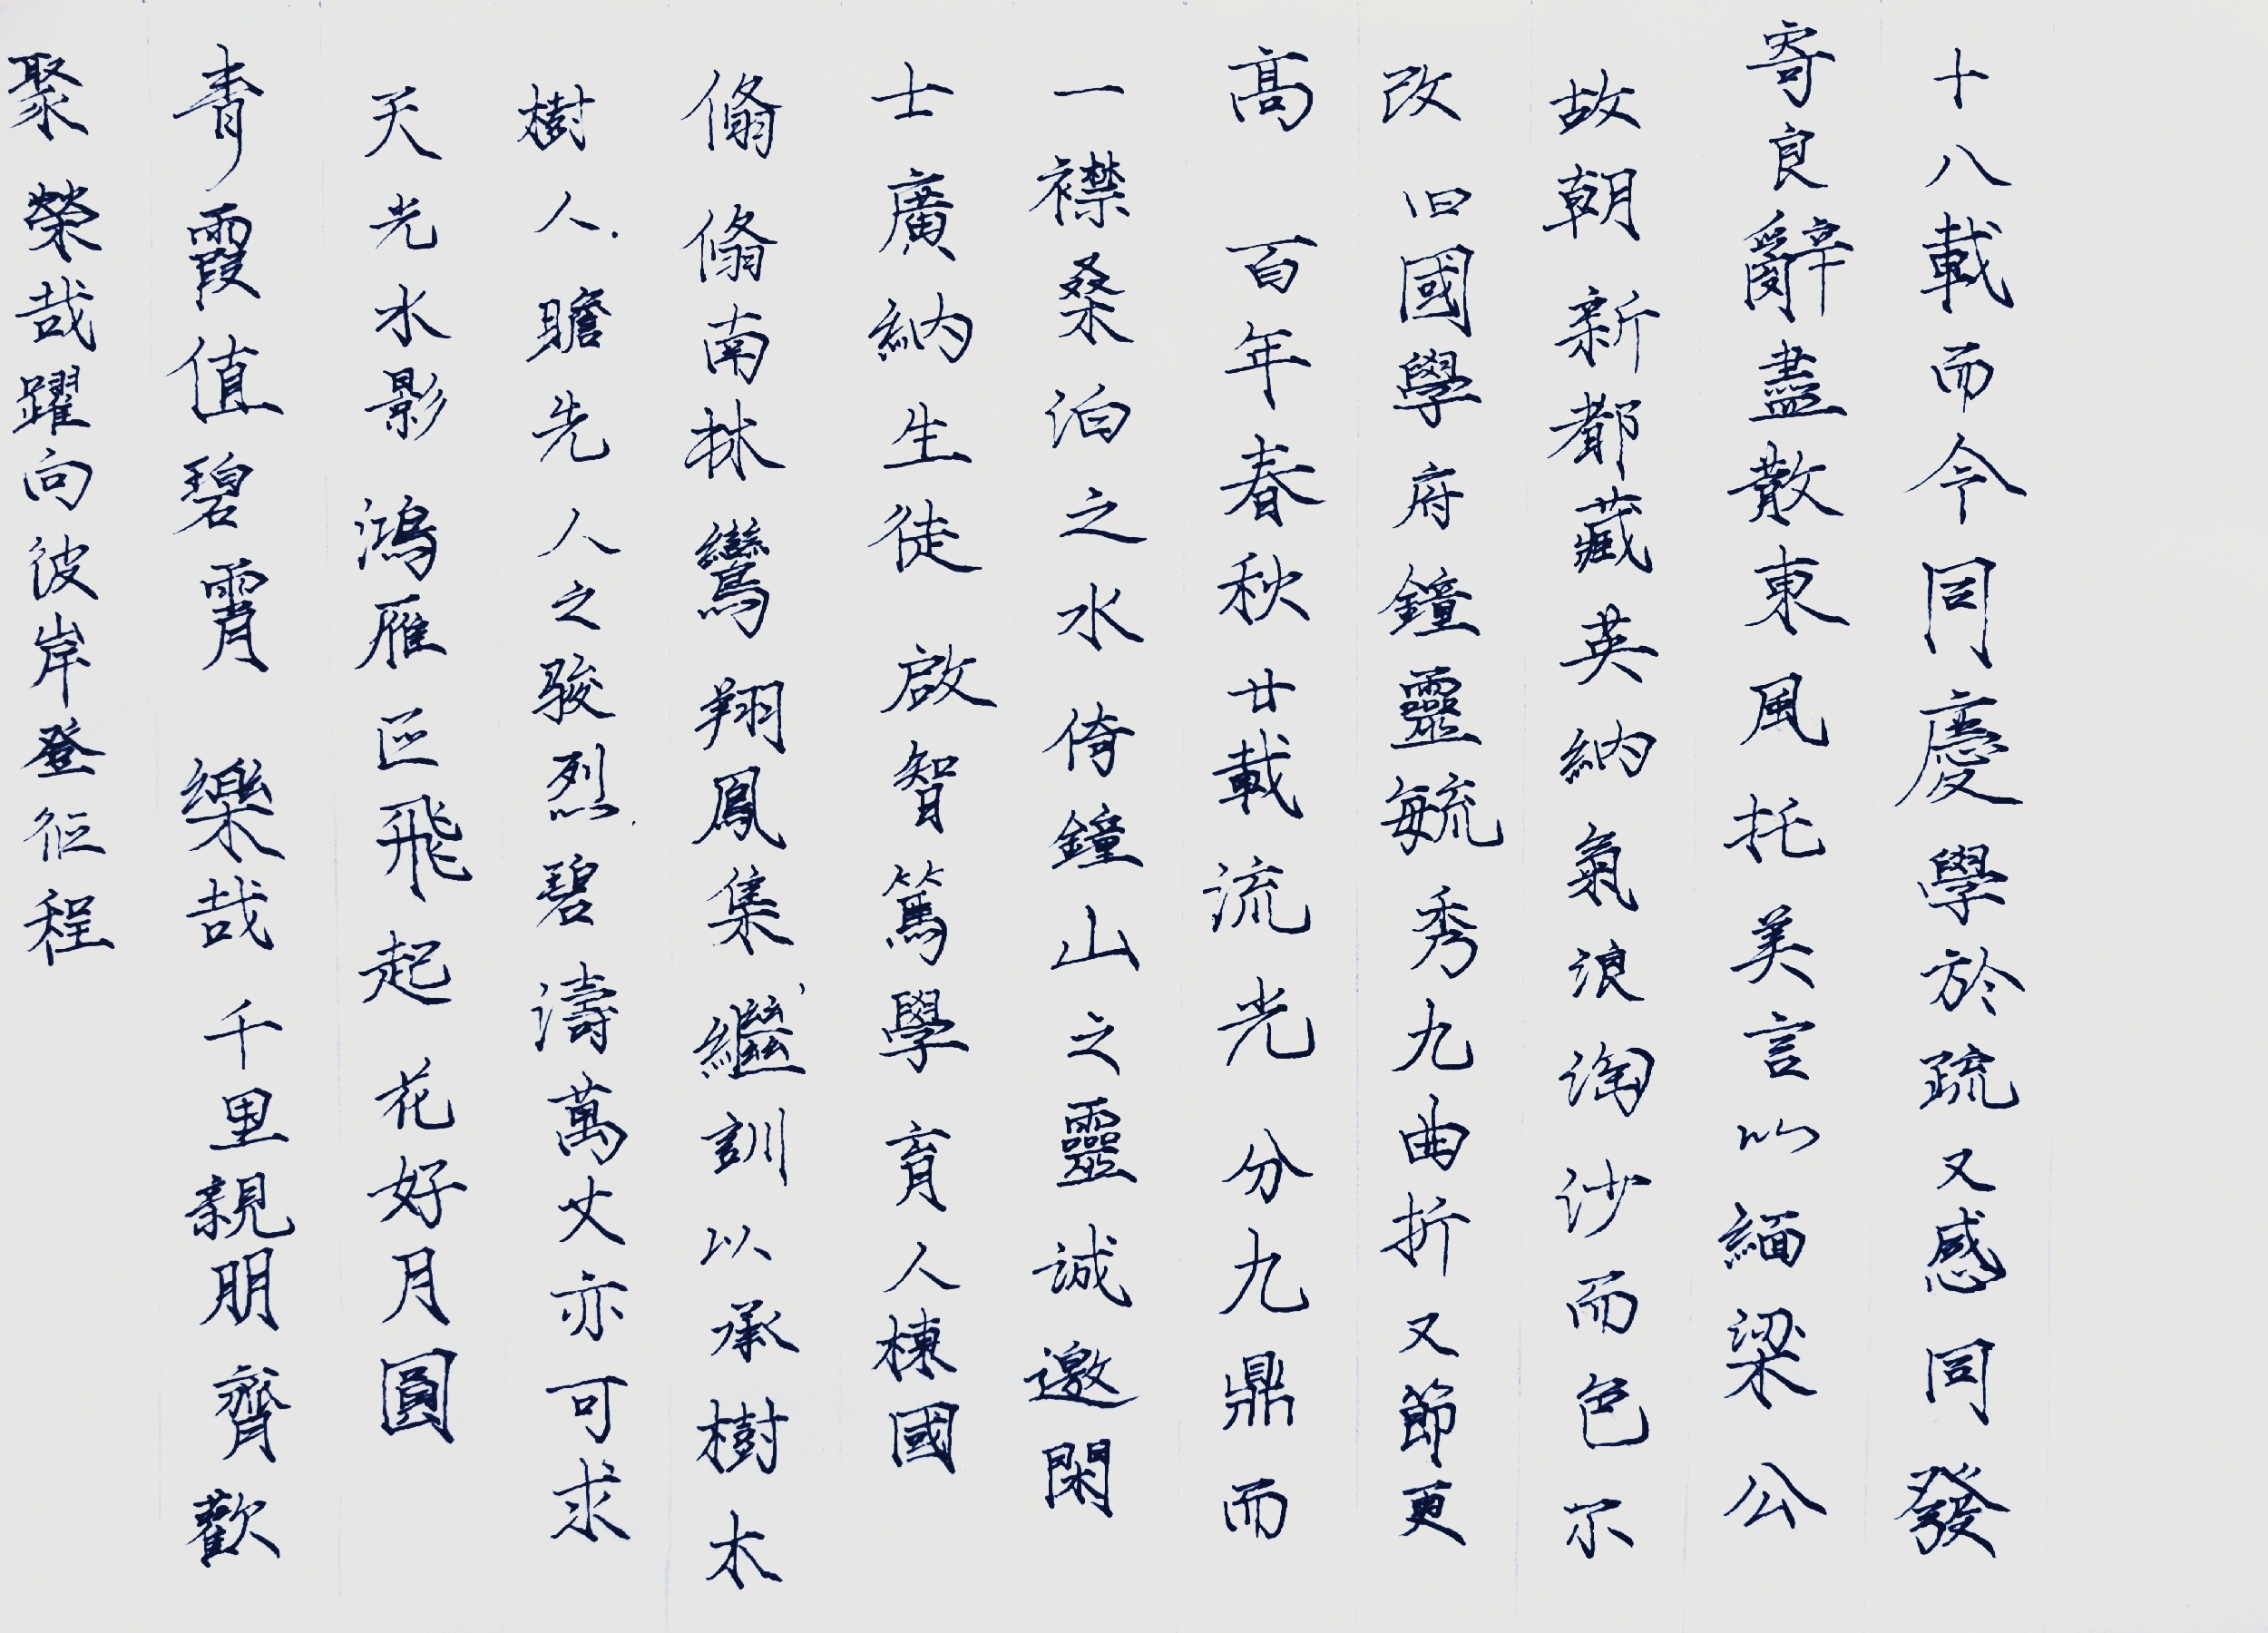 十八載而今同慶學於疏又感同發
寄良辭盡散東風托美言以緬梁公
故朝新都藏英納氣浪淘沙而色不
改旧國學府鐘靈毓秀九曲折又節更
高百年春秋廿載流光分九鼎而
一襟桑泊之水倚鐘山之靈誠邀閑
士廣納生徒啟智篤學育人棟國
翛翛南林鸞翔鳳集繼訓以承樹木
樹人瞻先人之骏烈碧濤萬丈亦可求
天光水影鴻雁叵飛起花好月圓
青霞值碧霄樂哉千里親朋齊歡
聚榮哉躍向彼岸登征程